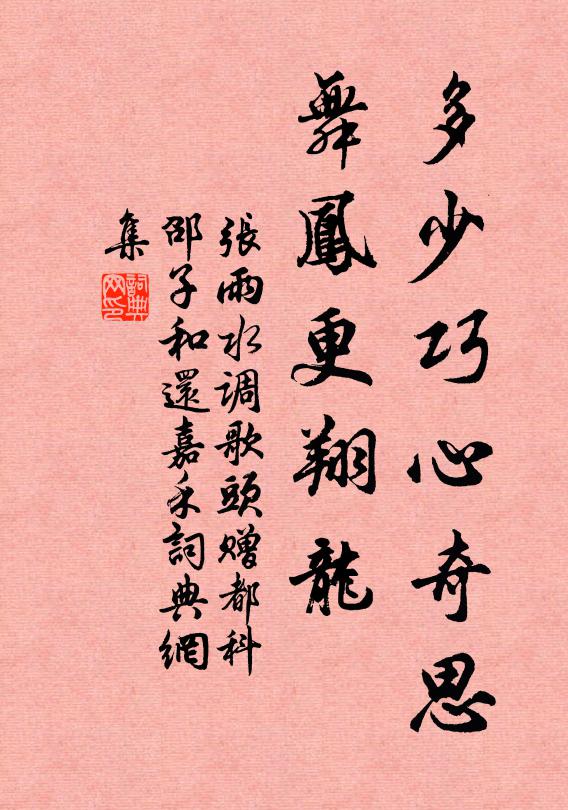 多少巧心奇思
舞鳳更翔龍
張雨水调歌頭赠都科
邵子和還嘉禾詞典網
集
詞典
网印